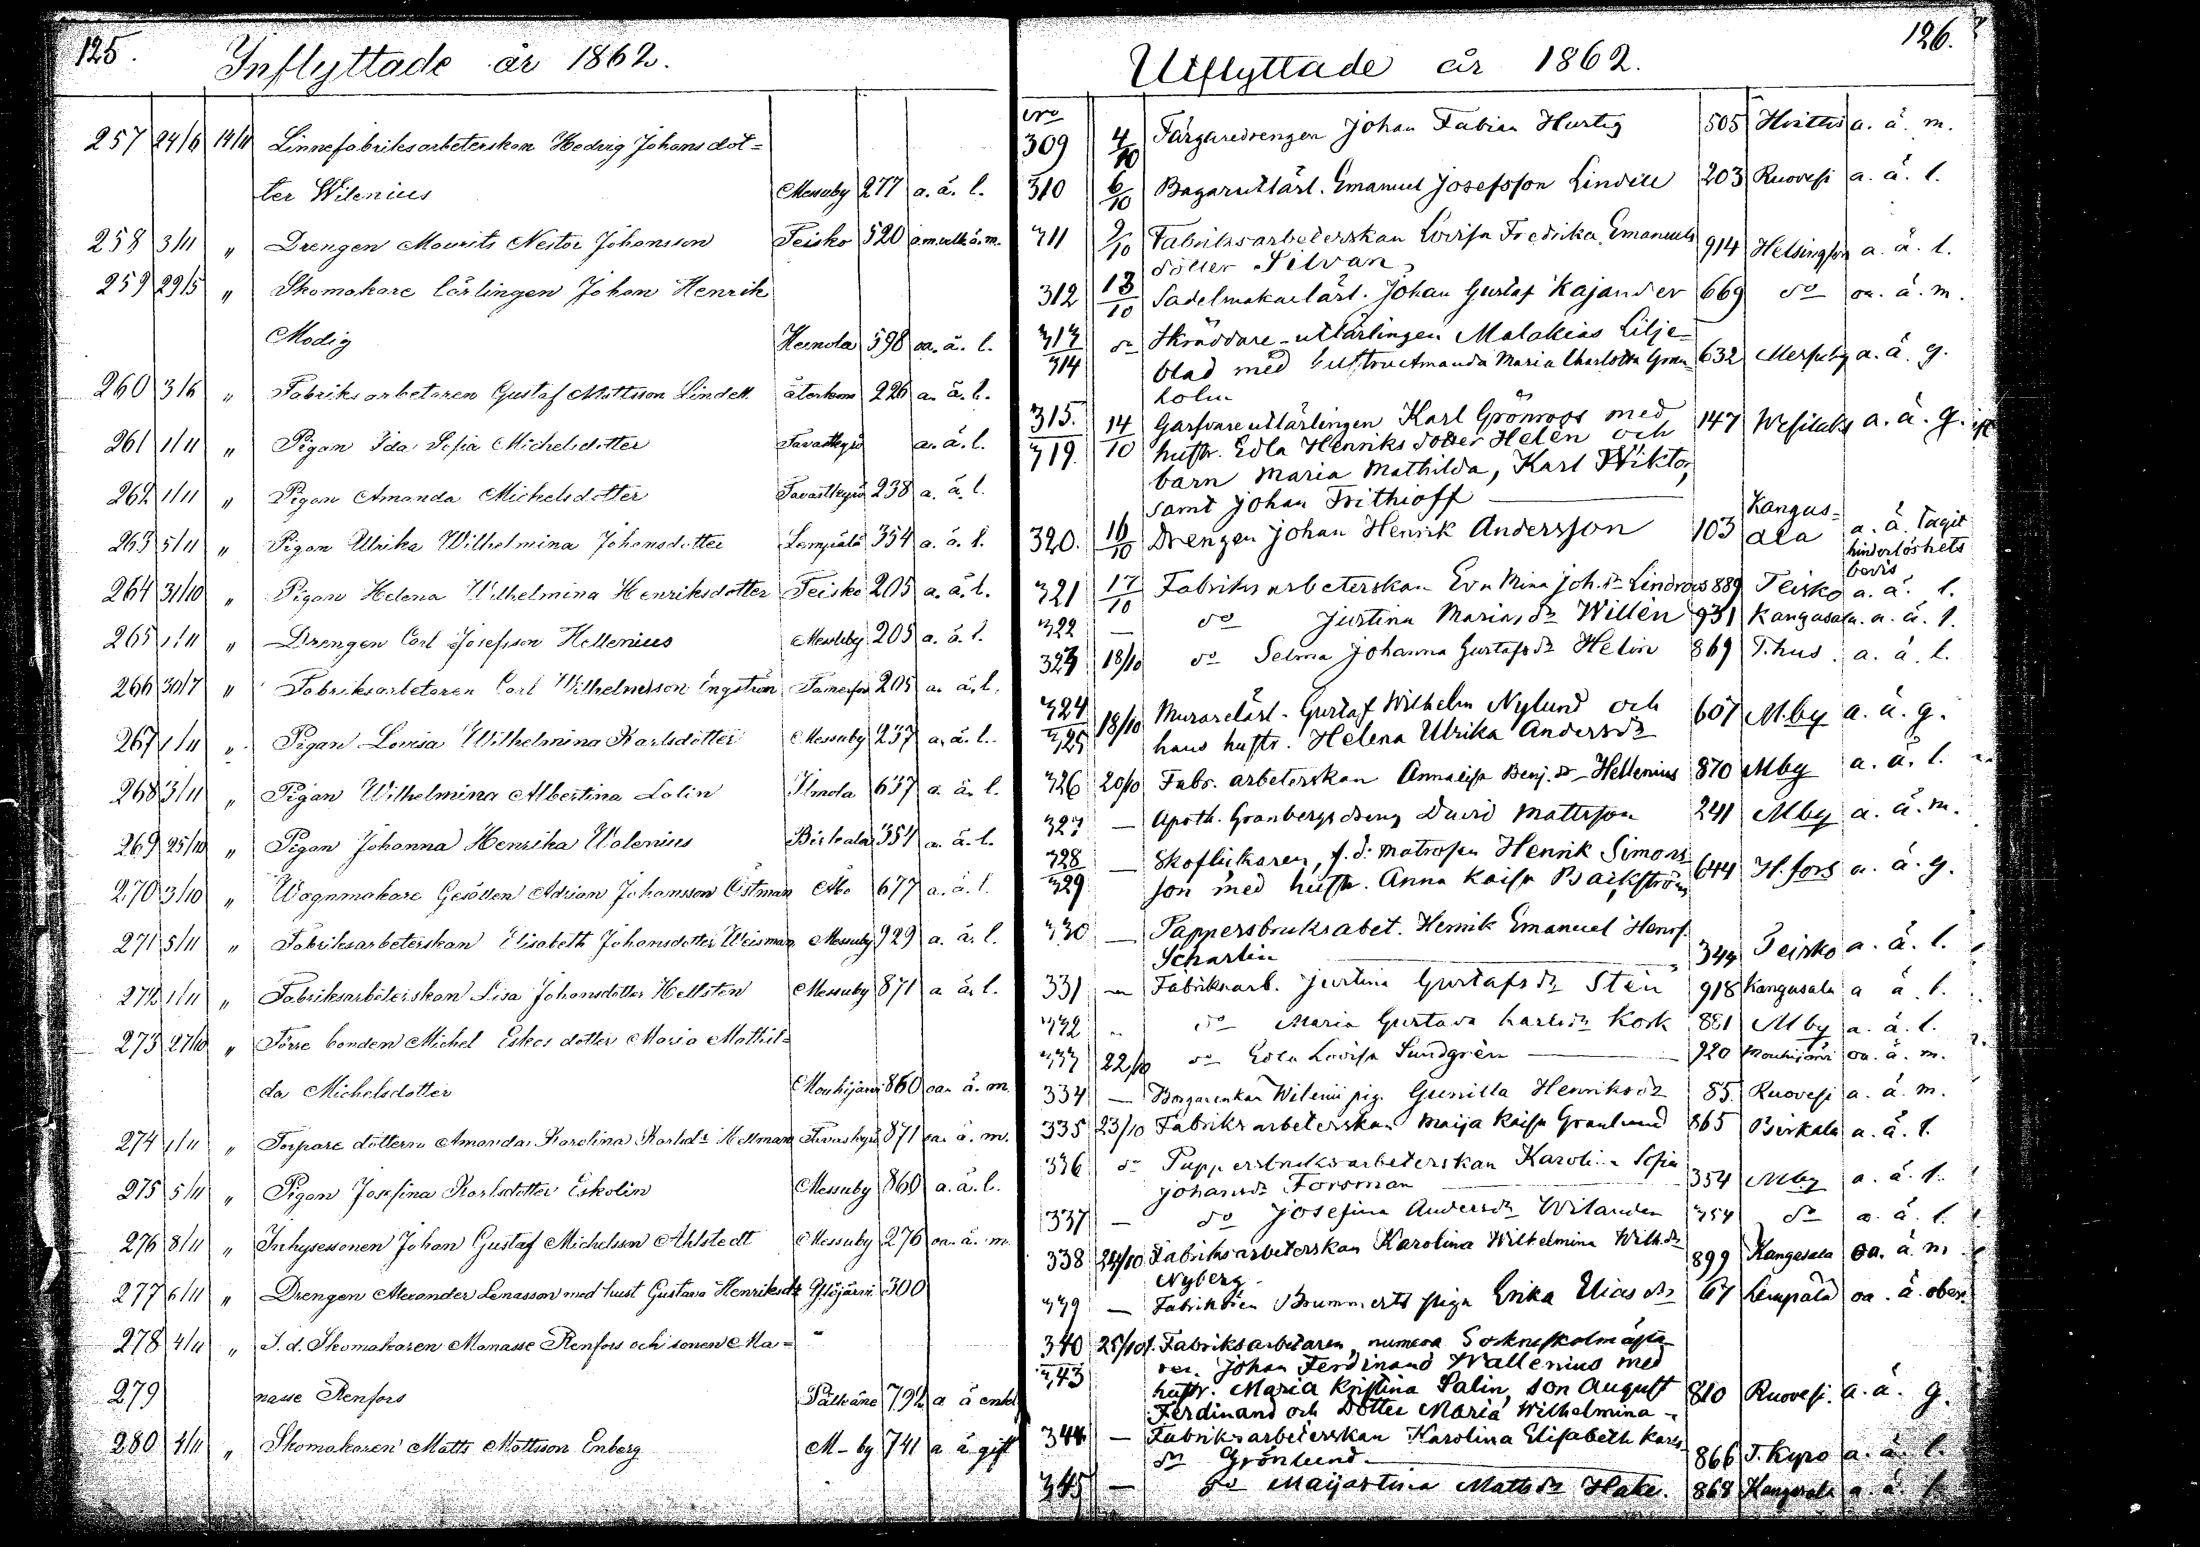 125.
Inflyttade år 1862.
257 24/6 14/11 Linnefabriksarbeterskan Hedvig Johansdot=
ter Wilenius Messuby 277 a. ä. l.
258 3/11 " Drengen Mourits Nestor Johansson Teisko 520
259 29/5 " Skomakare lärlingen Johan Henrik
Modig Heinola 598 oa. ä. l.
260 3/6 " Fabriksarbetaren Gustaf Mattsson Lindell återkom 226 a. ä. l.
261 1/11 " Pigan Ida Sofia Michelsdotter Tavastkyro a. ä. l.
262 1/11 " Pigan Amanda Michelsdotter Tavastkyro 238 a. ä. l.
263 5/11 " Pigan Ulrika Wilhelmina Johansdotter Lempälä 354 a. ä. l.
264 31/10 " Pigan Helena Wilhelmina Henriksdotter Teisko 205 a. ä. l.
265 1/11 " Drengen Carl Josefsson Hellenius Messuby 205 a. ä. l.
266 30/7 " Fabriksarbetaren Carl Wilhelmsson Engström Tamerfors 205 a. ä. l.
267 1/11 " Pigan Lovisa Wilhelmina Karlsdotter Messuby 237 a. ä. l.
268 3/11 " Pigan Wilhelmina Albertina Lolin Ilmola 637 a. ä. l.
269 25/10 " Pigan Johanna Henrika Walenius Birkala 354 a. ä. l.
270 3/10 " Wagnmakare Gesällen Adrian Johansson Östman Åbo 677 a. ä. l.
271 5/11 " Fabriksarbeterskan Elisabeth Johansdotter Weisman Messuby 929 a. ä. l.
272 1/11 " Fabriksarbeterskan Lisa Johansdotter Hellsten Messuby 871 a. ä. l.
273 27/10 " Förre bonden Michel Eskos dotter Maria Mathil=
da Michelsdotter Mouhijärvi 860 oa. ä. m.
274 1/11 " Torpare dottern Amanda Karolina Karlsdr Hellman 871 oa. ä. m.
275 5/11 " Pigan Josefina Karlsdotter Eskolin Messuby 860 a. ä. l.
276 8/11 " Inhysessonen Johan Gustaf Michelsson Ahlstedt Messuby 276 oa. ä. m.
277 6/11 " Drengen Alexander Lenasson med hust Gustava Henriksdr Ylöjärvi 300
278 4/11 " F. d. Skomakaren Manasse Renfors och sonen Ma= "
279 nasse Renfors Pälkäne 792 a ä enkl
280 4/11 " Skomakaren Matts Mattsson Enberg M-by 741 a ä gift
126.
Utflyttade år 1862.
No
309 4/10 Färgaredrengen Johan Fabian Hurtig 505 Hvittis a. ä. m.
310 6/10 Bagareutlärl. Emanuel Josefsson Lindell 203 Ruovesi a. ä. l.
311 9/10 Fabriksarbeterskan Lovisa Fredrika Emanuels
dotter Silvan 914 Helsingfors a. ä. l.
312 13/10 Sadelmakarlärl. Johan Gustaf Kajander 669 do oa. ä. m.
313 do Skräddare-utlärlingen Malakias Lilje=
314 blad med hustru Amanda Maria Charlotta Gran= 632 Messuby a. ä. g.
holm
315. 14/10 Garfvareutlärlingen Karl Grönroos med 147 Wesilaks a. ä. g.
319. hustr. Edla Henriksdotter Helén och
barn Maria Mathilda, Karl Wiktor,
samt Johan Frithioff
320. 16/10 Drengen Johan Henrik Andersson 103 Kangas=
ala a. ä. tagit
hinderlöshets
bevis
321 17/10 Fabriksarbeterskan Eva Mina Joh. dr Lindroos 889 Teisko a. ä. l.
322 — do Justina Mariasdr Willén 931 Kangasala. a. ä. l.
323 18/10 do Selma Johanna Gustafsdr Helin 869 T.hus. a. ä. l.
324 18/10 Murarelärl. Gustaf Wilhelm Nylund och 607 M.by a. ä. g.
325 hans hustr. Helena Ulrika Andersdr
326 20/10 Fabr. arbeterskan Annalisa Benj. dr Hellenius 870 Mby a. ä. l.
327 — Apoth. Granbergs dreng David Mattsson 241 Mby a. ä. m.
328 — Skoflickaren, f. d. matrosen Henrik Simons
329 son med hustr. Anna Kaisa Backström 644 H.fors a. ä. g.
330 — Pappersbruksabet. Henrik Emanuel Henr.
Scharlin 344 Teisko a. ä. l.
331 — Fabriksarb. Justina Gustafsdr Stén 918 Kangasala a ä. l.
332 " do Maria Gustava Karlsdr Kock 881 Mby a. ä. l.
333 22/10 do Edla Lovisa Sundgrén 920 Mouhijärvi oa. ä. m.
334 — Borgarenkan Wilenii piga Gunilla Henriksdr 85 Ruovesi a. ä. m.
335 23/10 Fabriksarbeterskan Maija Kaisa Granlund 865 Birkala a. ä. l.
336 do Pappersbruksarbeterskan Karolina Sofia
Johansdr Forsman 354 Mby a. ä. l.
337 — do Josefina Andersdr Wilander 354 do a. ä. l.
338 24/10 Fabriksarbeterskan Karolina Wilhelmina Wilh.dr
Nyberg 899 Kangasala oa. ä. m
339 — Fabrikören Brummerts piga Erika Eliasdr 67 Lempälä oa. ä.
340 25/10 f. Fabriksarbetaren, numera Sockneskolmästa
343 ren Johan Ferdinand Wallenius med
hustr. Maria Kristina Salin, son August 810 Ruovesi. a. ä. g.
Ferdinand och Dotter Maria Wilhelmina
344 — Fabriksarbeterskan Karolina Elisabeth Karls
dr Grönlund 866 T. kyro a. ä. l.
345 — do Maijastina Mattsdr Hake. 868 Kangasala a. ä. l